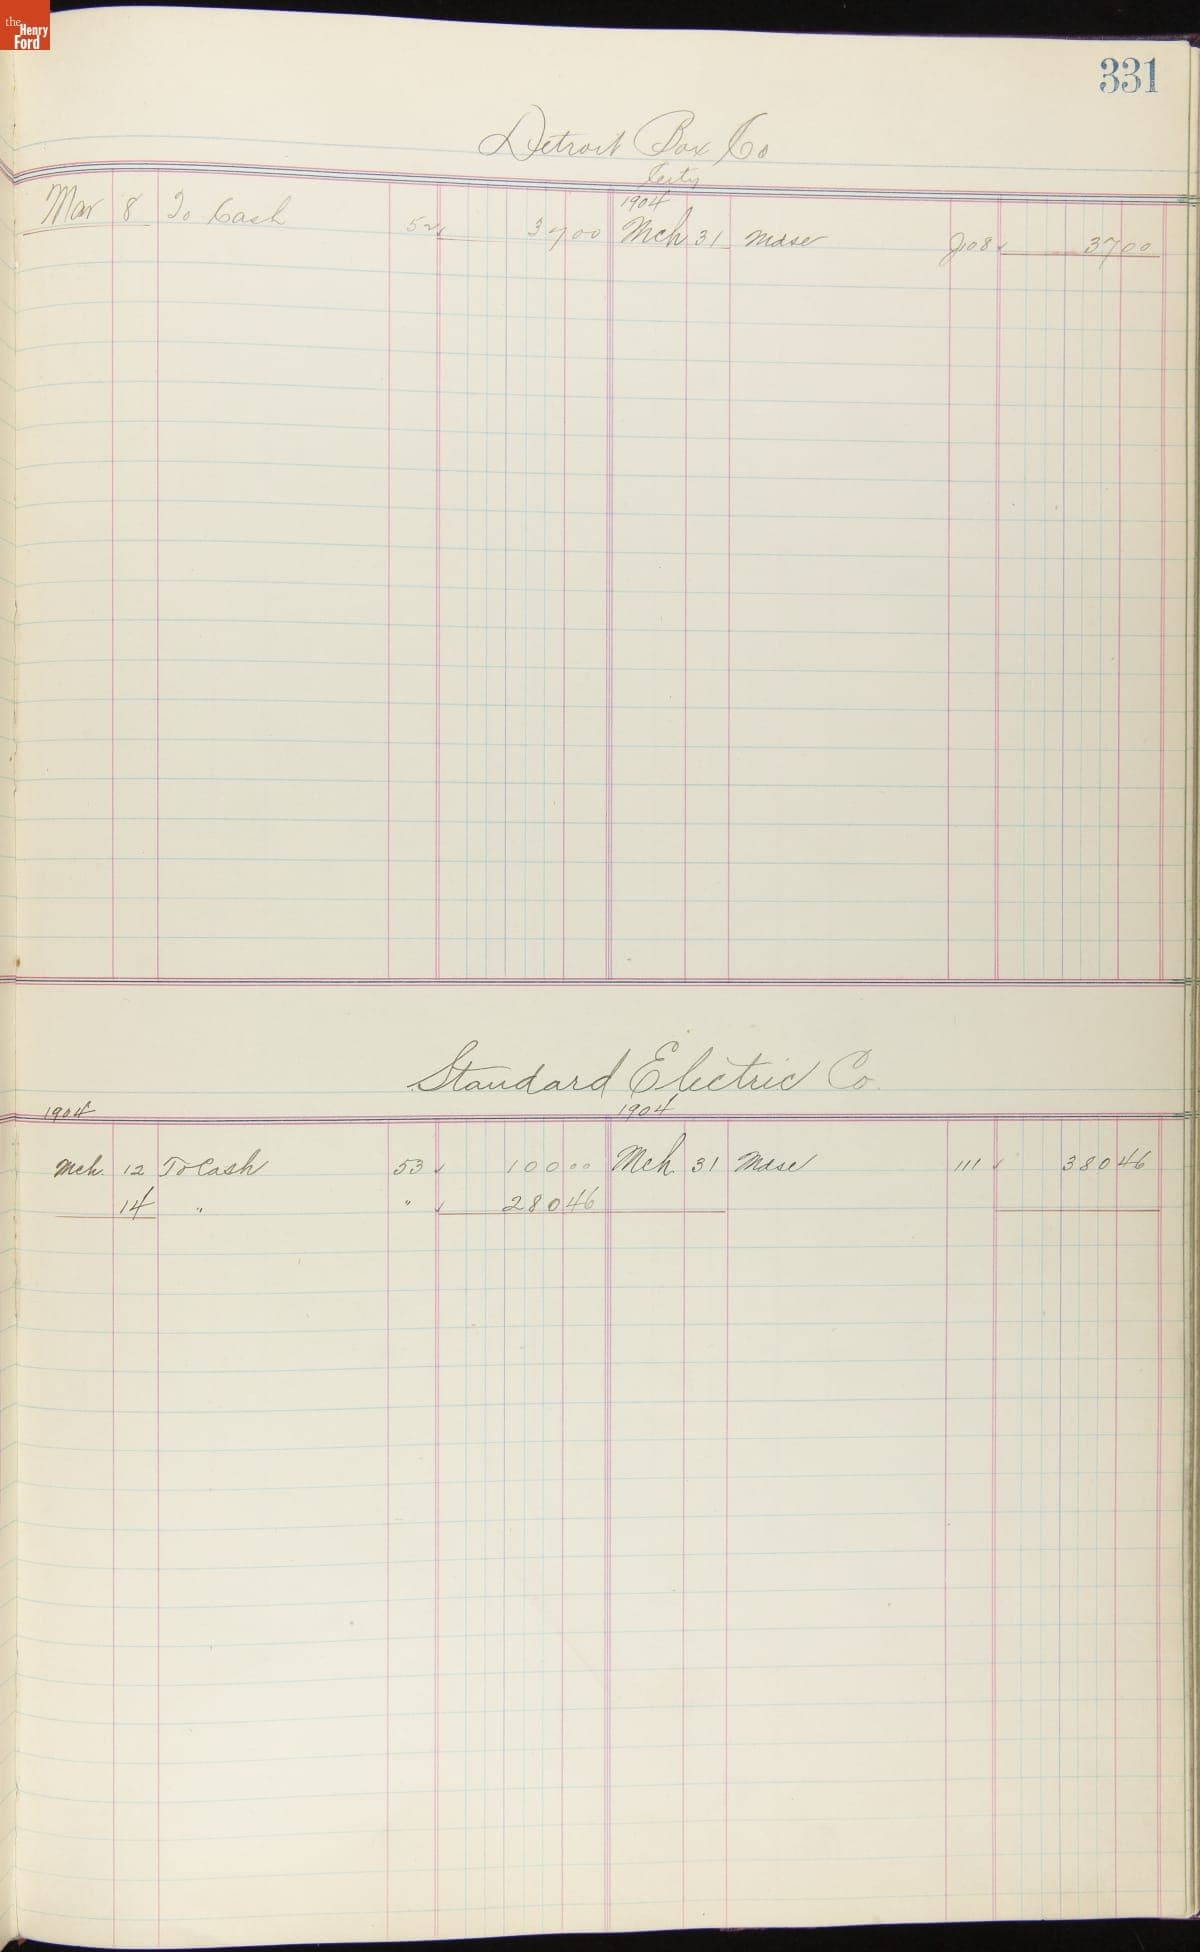 the
Henry
Ford
331
Detroit Box Co
1904
Mar 8 To Cash 52 37 00 Mch 31 Mdse J108 37 00
Standard Electric Co.
1904 1904
Mch. 12 To Cash 53 100 00 Mch. 31 Mdse 111 380 46
14 " " 280 46